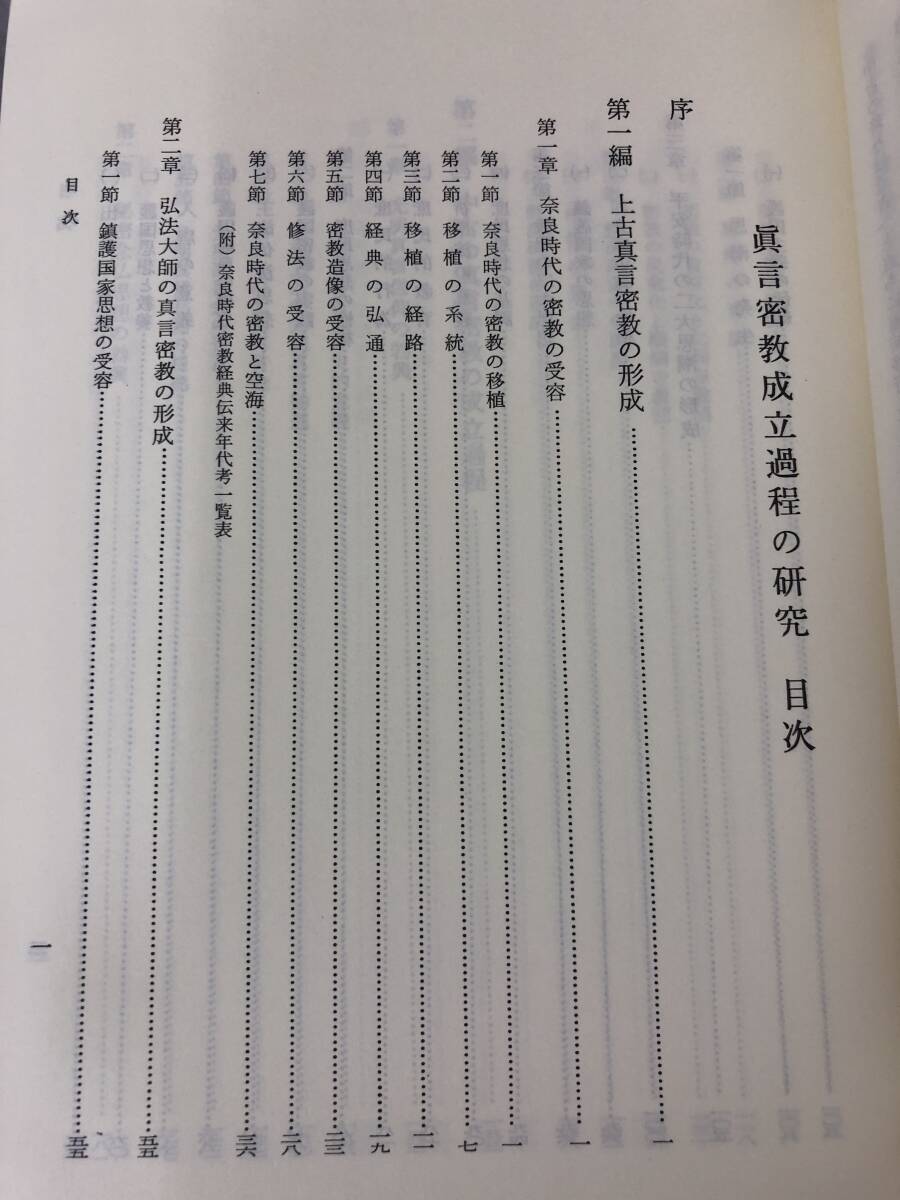 眞言密教成立過程の研究　目次
序
第一編　上古真言密教の形成……一
第一章　奈良時代の密教の受容……一
第一節　奈良時代の密教の移植……一
第二節　移植の系統……七
第三節　移植の経路……一一
第四節　経典の弘通……一九
第五節　密教造像の受容……二三
第六節　修法の受容……二八
第七節　奈良時代の密教と空海……三六
（附）奈良時代密教経典伝来年代考一覧表
第二章　弘法大師の真言密教の形成……五五
第一節　鎮護国家思想の受容……五五
目次
一